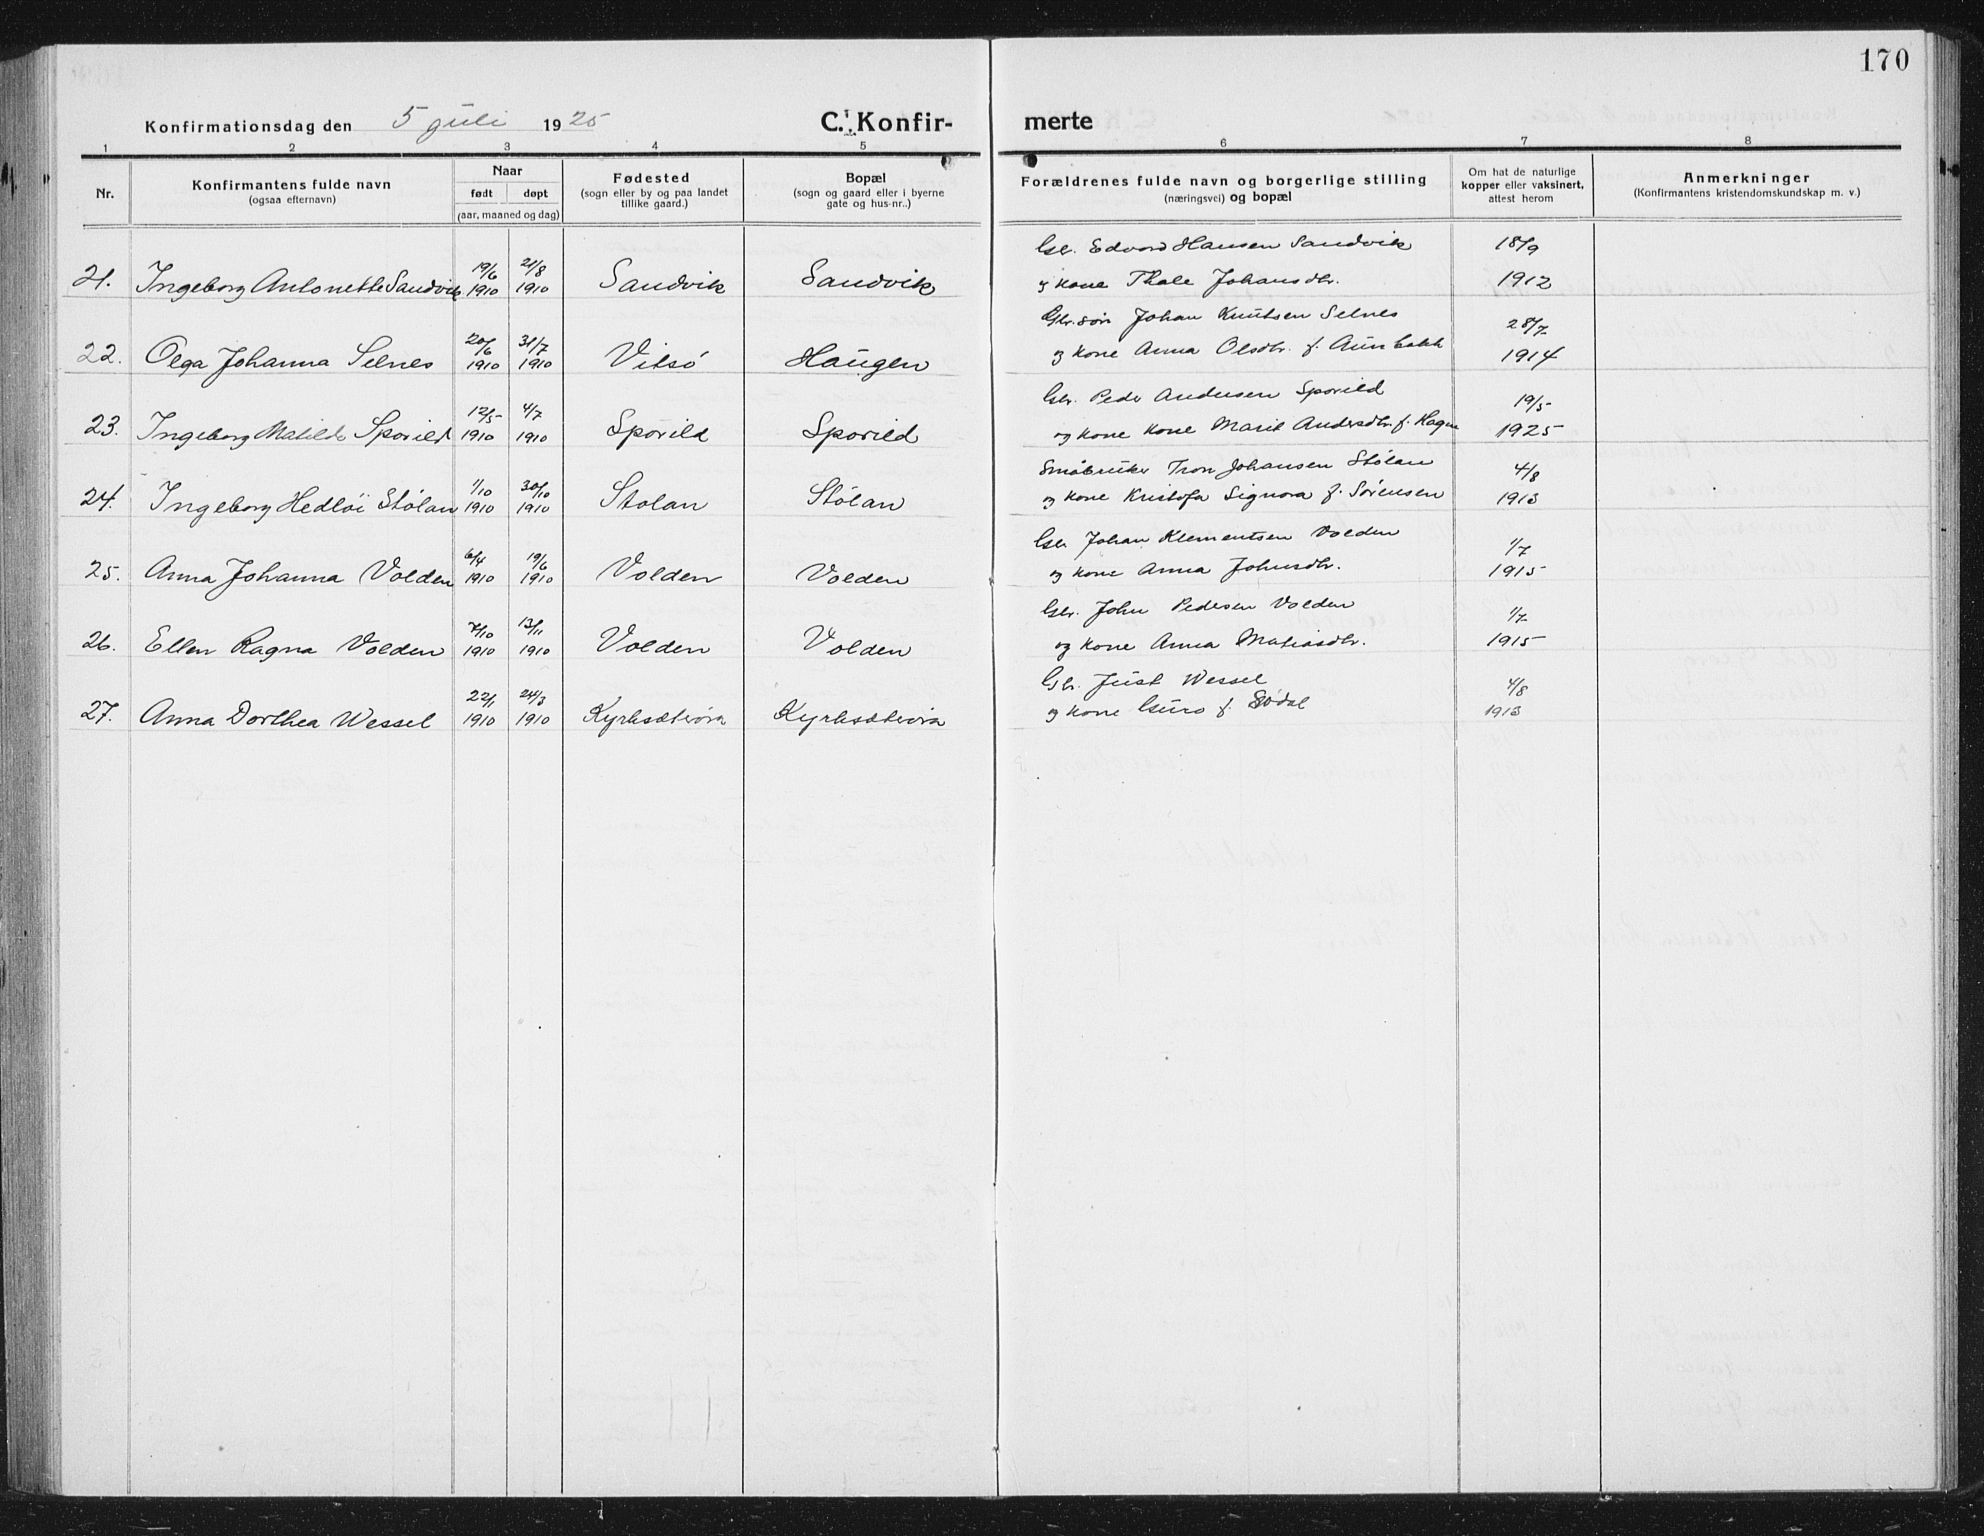 170
Konfirmationsdag den 5 juli 1925 C. Konfir- merte
1 2 3 4 5 6 7 8
Nr. Konfirmantens fulde navn (ogsaa efternavn) Naar født døpt (aar, maaned og dag) Fødested (sogn eller by og paa landet tillike gaard.) Bopæl (sogn og gaard eller i byerne gate og hus-nr..) Forældrenes fulde navn og borgerlige stilling (næringsvei) og bopæl Om hat de naturlige kopper eller vaksinert, attest herom Anmerkninger (Konfirmantens kristendomskundskap m. v.)
Gbr. Edvard Hansen Sandvik 18/9
21. Ingeborg Antonette Sandvik 19/6 1910 21/8 1910 Sandvik Sandvik og kone Thale Johansdtr. 1912
Gbr. søn Johan Knutsen Selnes 28/7
22. Olga Johanna Selnes 20/6 1910 31/7 1910 Vitsø Haugen og kone Anna Olsdtr. f. Aunbakk 1914
Gbr. Peder Andersen Sporild 19/5
23. Ingeborg Matilde Sporild 12/5 1910 4/7 1910 Sporild Sporild og kone kone Marit Andersdtr. f. Hagen 1925
Småbruker Tron Johansen Stølan 4/8
24. Ingeborg Hedløi Stølan 1/10 1910 30/10 1910 Stølan Stølan og kone Kristofa Signora f. Sørensen 1913
Gbr Johan Klementsen Volden 1/7
25. Anna Johanna Volden 6/4 1910 19/6 1910 Volden Volden og kone Anna Johnsdtr. 1915
Gbr. John Pedersen Volden 1/7
26. Ellen Ragna Volden 7/10 1910 13/11 1910 Volden Volden og kone Anna Matiasdtr. 1915
Gbr. Just Wessel 4/8
27. Anna Dorthea Wessel 22/1 1910 24/3 1910 Kyrksæterøra Kyrksæterøra og kone Guro f. Sødal 1913